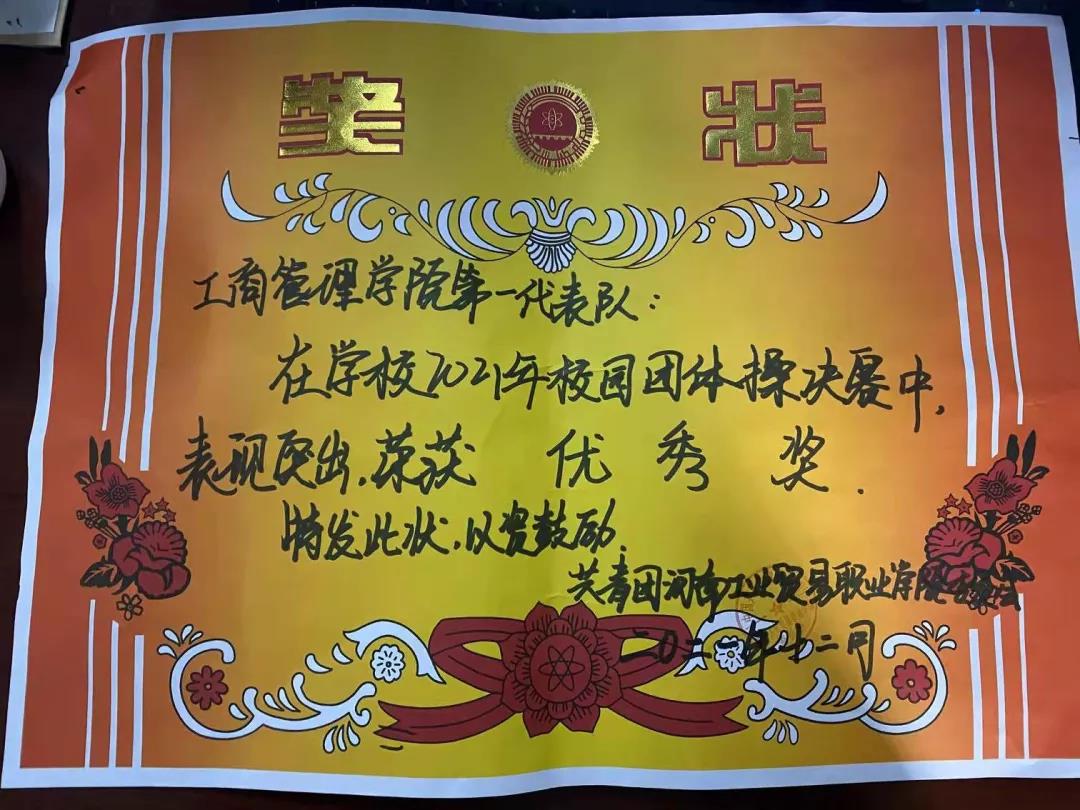 奖状
工商管理学院第一代表队：
在学校2021年校园团体操决赛中，
表现突出，荣获 优秀奖．
特发此状，以资鼓励．
共青团河南工业贸易职业学院委员会
二〇二一年十二月